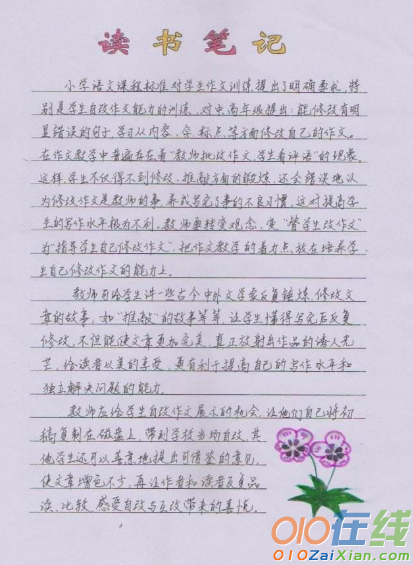 读书笔记
小学语文课程标准对学生作文训练提出了明确要求,特
别是学生自改作文能力的训练,对中高年级提出:能修改有明
显错误的句子,学习从内容、字、标点等方面修改自己的作文。
在作文教学中普遍存在着“教师批改作文,学生看评语”的现象,
这样,学生不仅得不到修改、推敲方面的锻炼,还会错误地认
为修改作文是教师的事,养成写完了事的不良习惯,这对提高学
生的写作水平极为不利。教师要转变观念,变“替学生改作文”
为“指导学生自己修改作文”,把作文教学的着力点,放在培养学
生自己修改作文的能力上。
教师可给学生讲一些古今中外文学家反复锤炼、修改文
章的故事,如“推敲”的故事等等,让学生懂得写完后反复
修改,不但能使文章更加完美,真正放射出作品的诱人光
芒,给读者以美的享受,更有利于提高自己的写作水平和
独立解决问题的能力。
教师应给学生自改作文展示的机会,让他们自己将初
稿复制在磁盘上,带到学校当场自改,其
他学生还可以善意地提出可借鉴的意见,
使文章增色不少,再让作者和读者反复品
读、比较,感受自改与互改带来的喜悦。
010在线
010ZaiXian.com